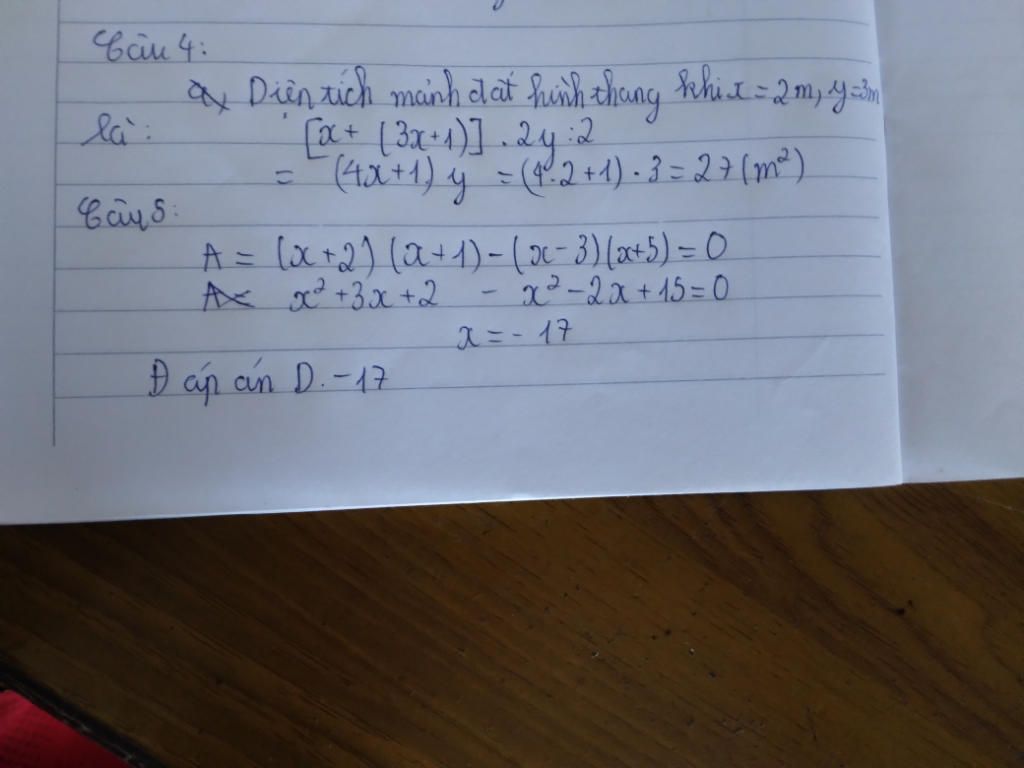 Câu 4:
a, Diện tích mảnh đất hình thang khi x = 2m, y = 3m
là: [x + (3x+1)] . 2y : 2
= (4x+1) y = (4.2+1) . 3 = 27 (m²)
Câu 5:
A = (x+2) (x+1) - (x-3)(x+5) = 0
x² + 3x + 2 - x² - 2x + 15 = 0
x = - 17
Đáp án D. -17